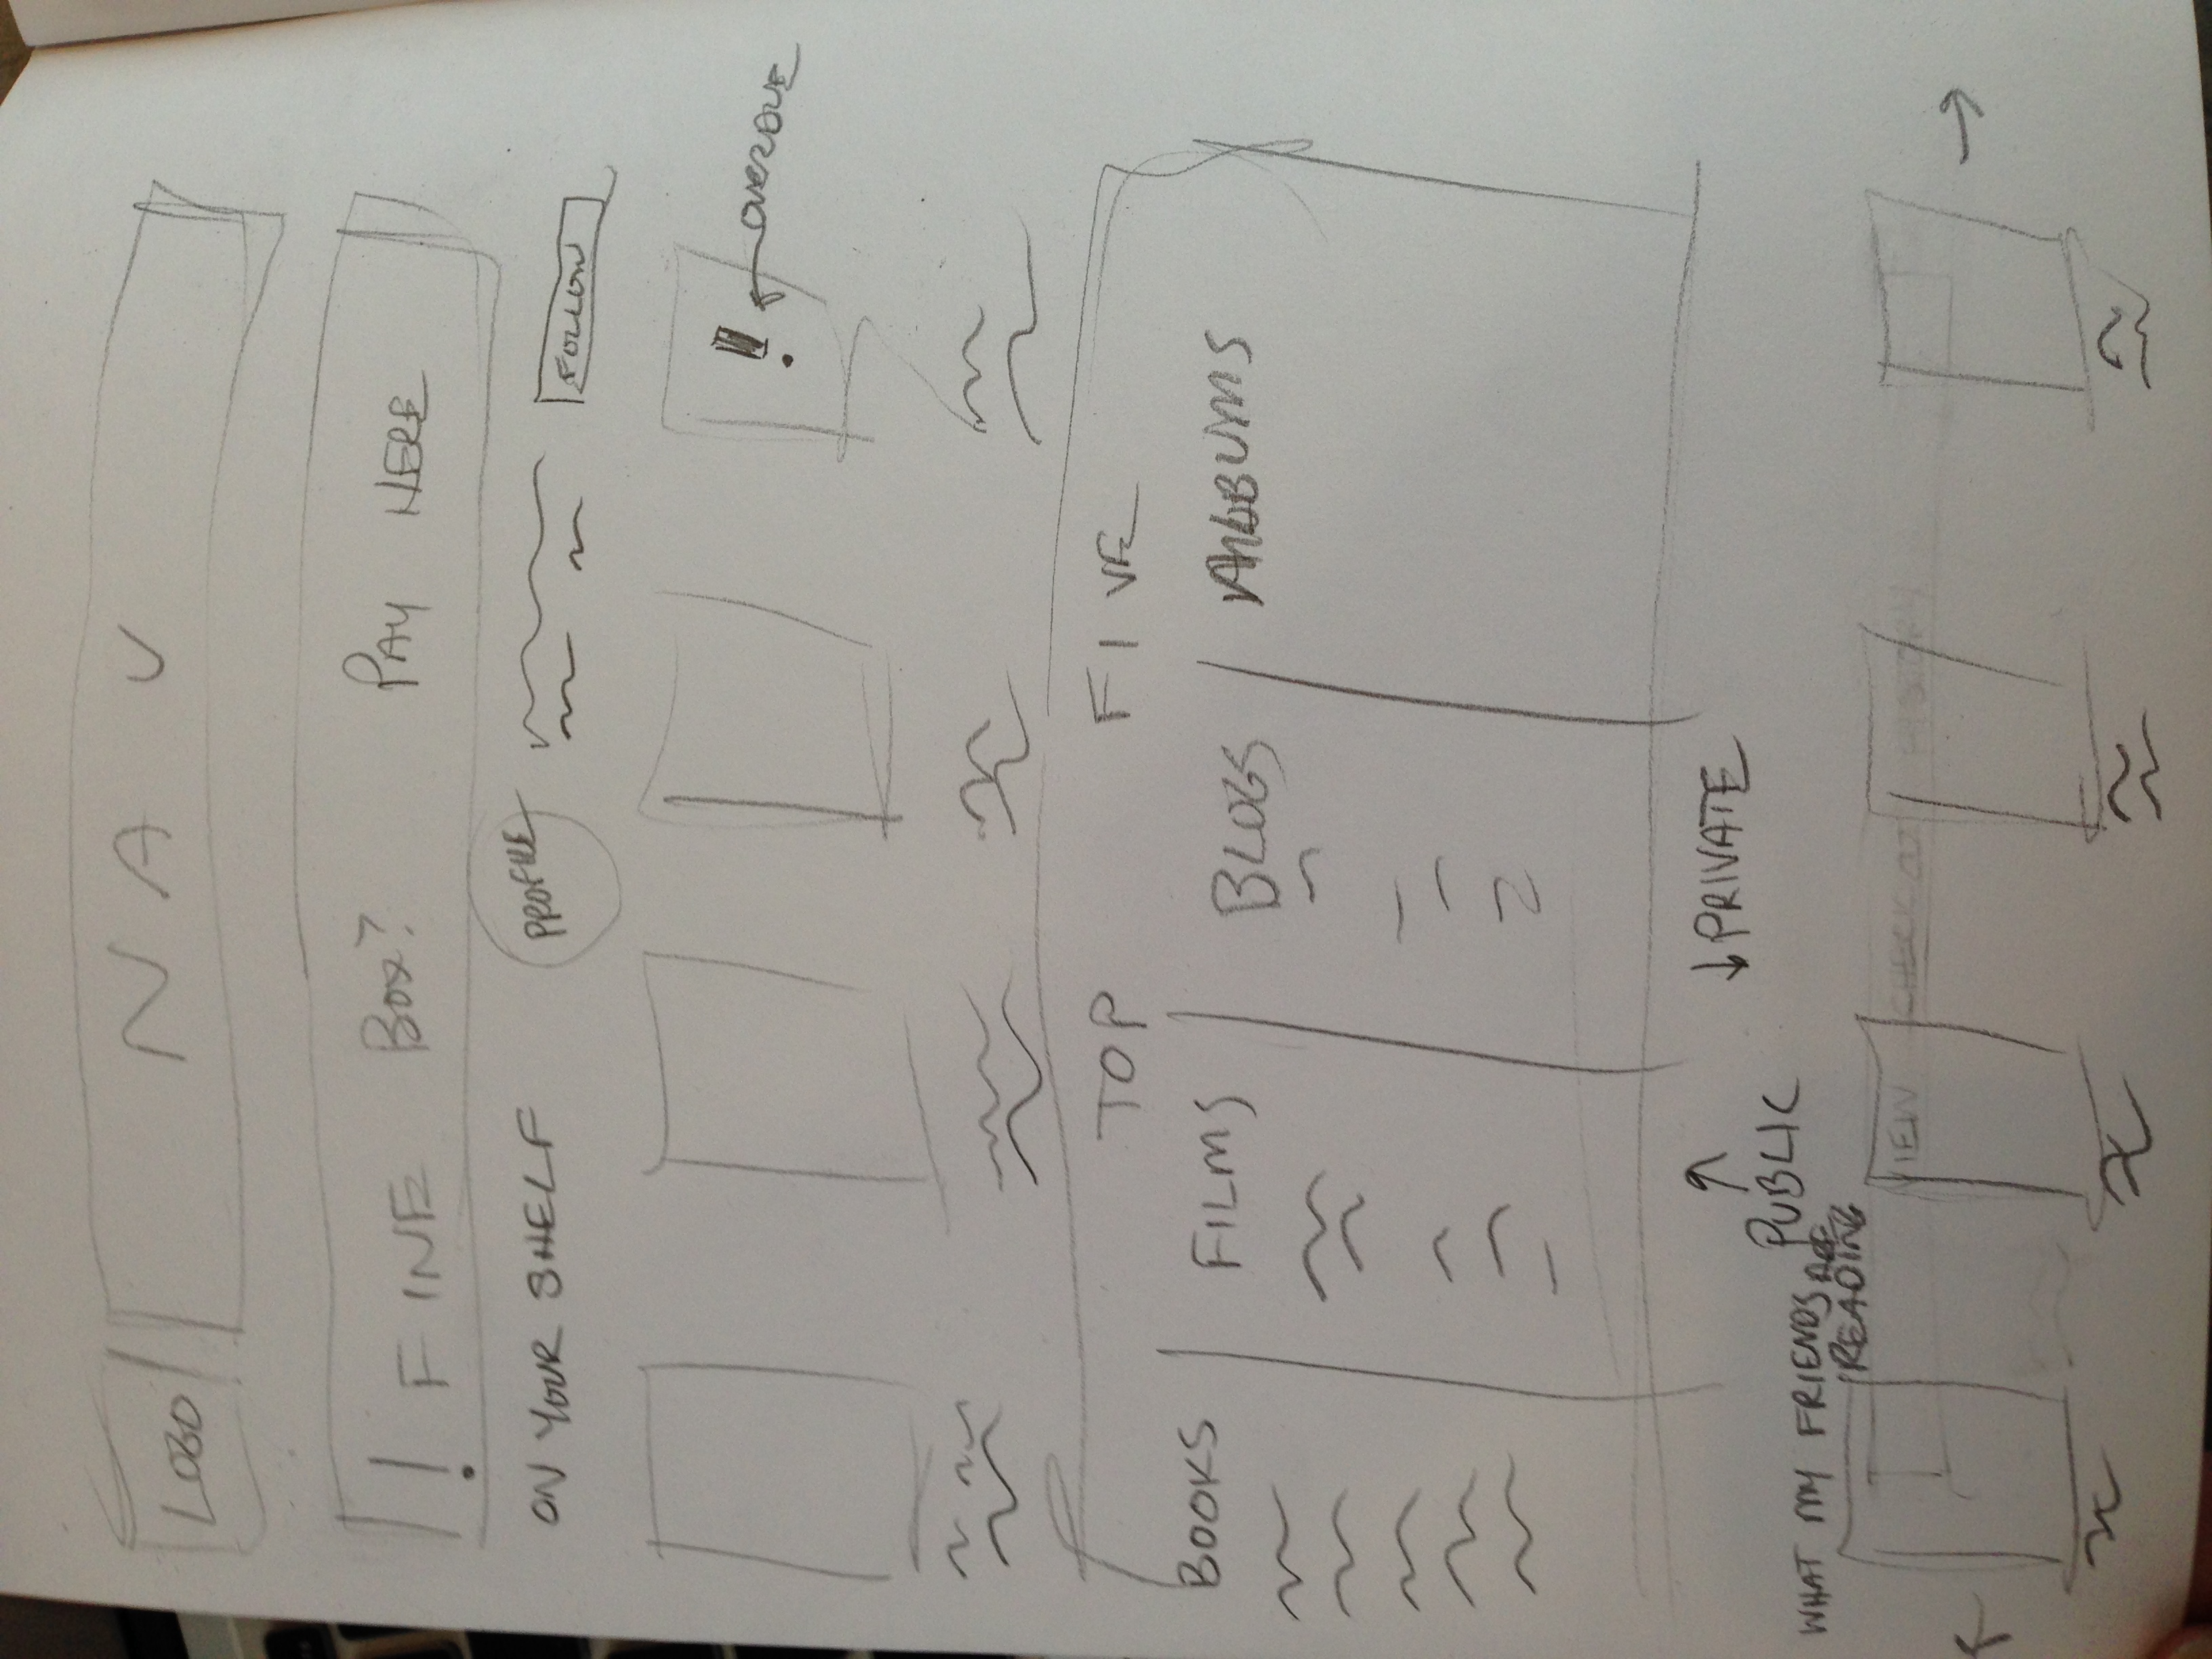 LOGO NAV
! FINE BOX? PAY HERE
ON YOUR SHELF PROFILE FOLLOW
! OVERDUE
TOP FIVE
BOOKS FILMS BLOGS ALBUMS
↑ ↓ PRIVATE
PUBLIC
WHAT MY FRIENDS ARE
READING
VIEW CHECK OUT HISTORY